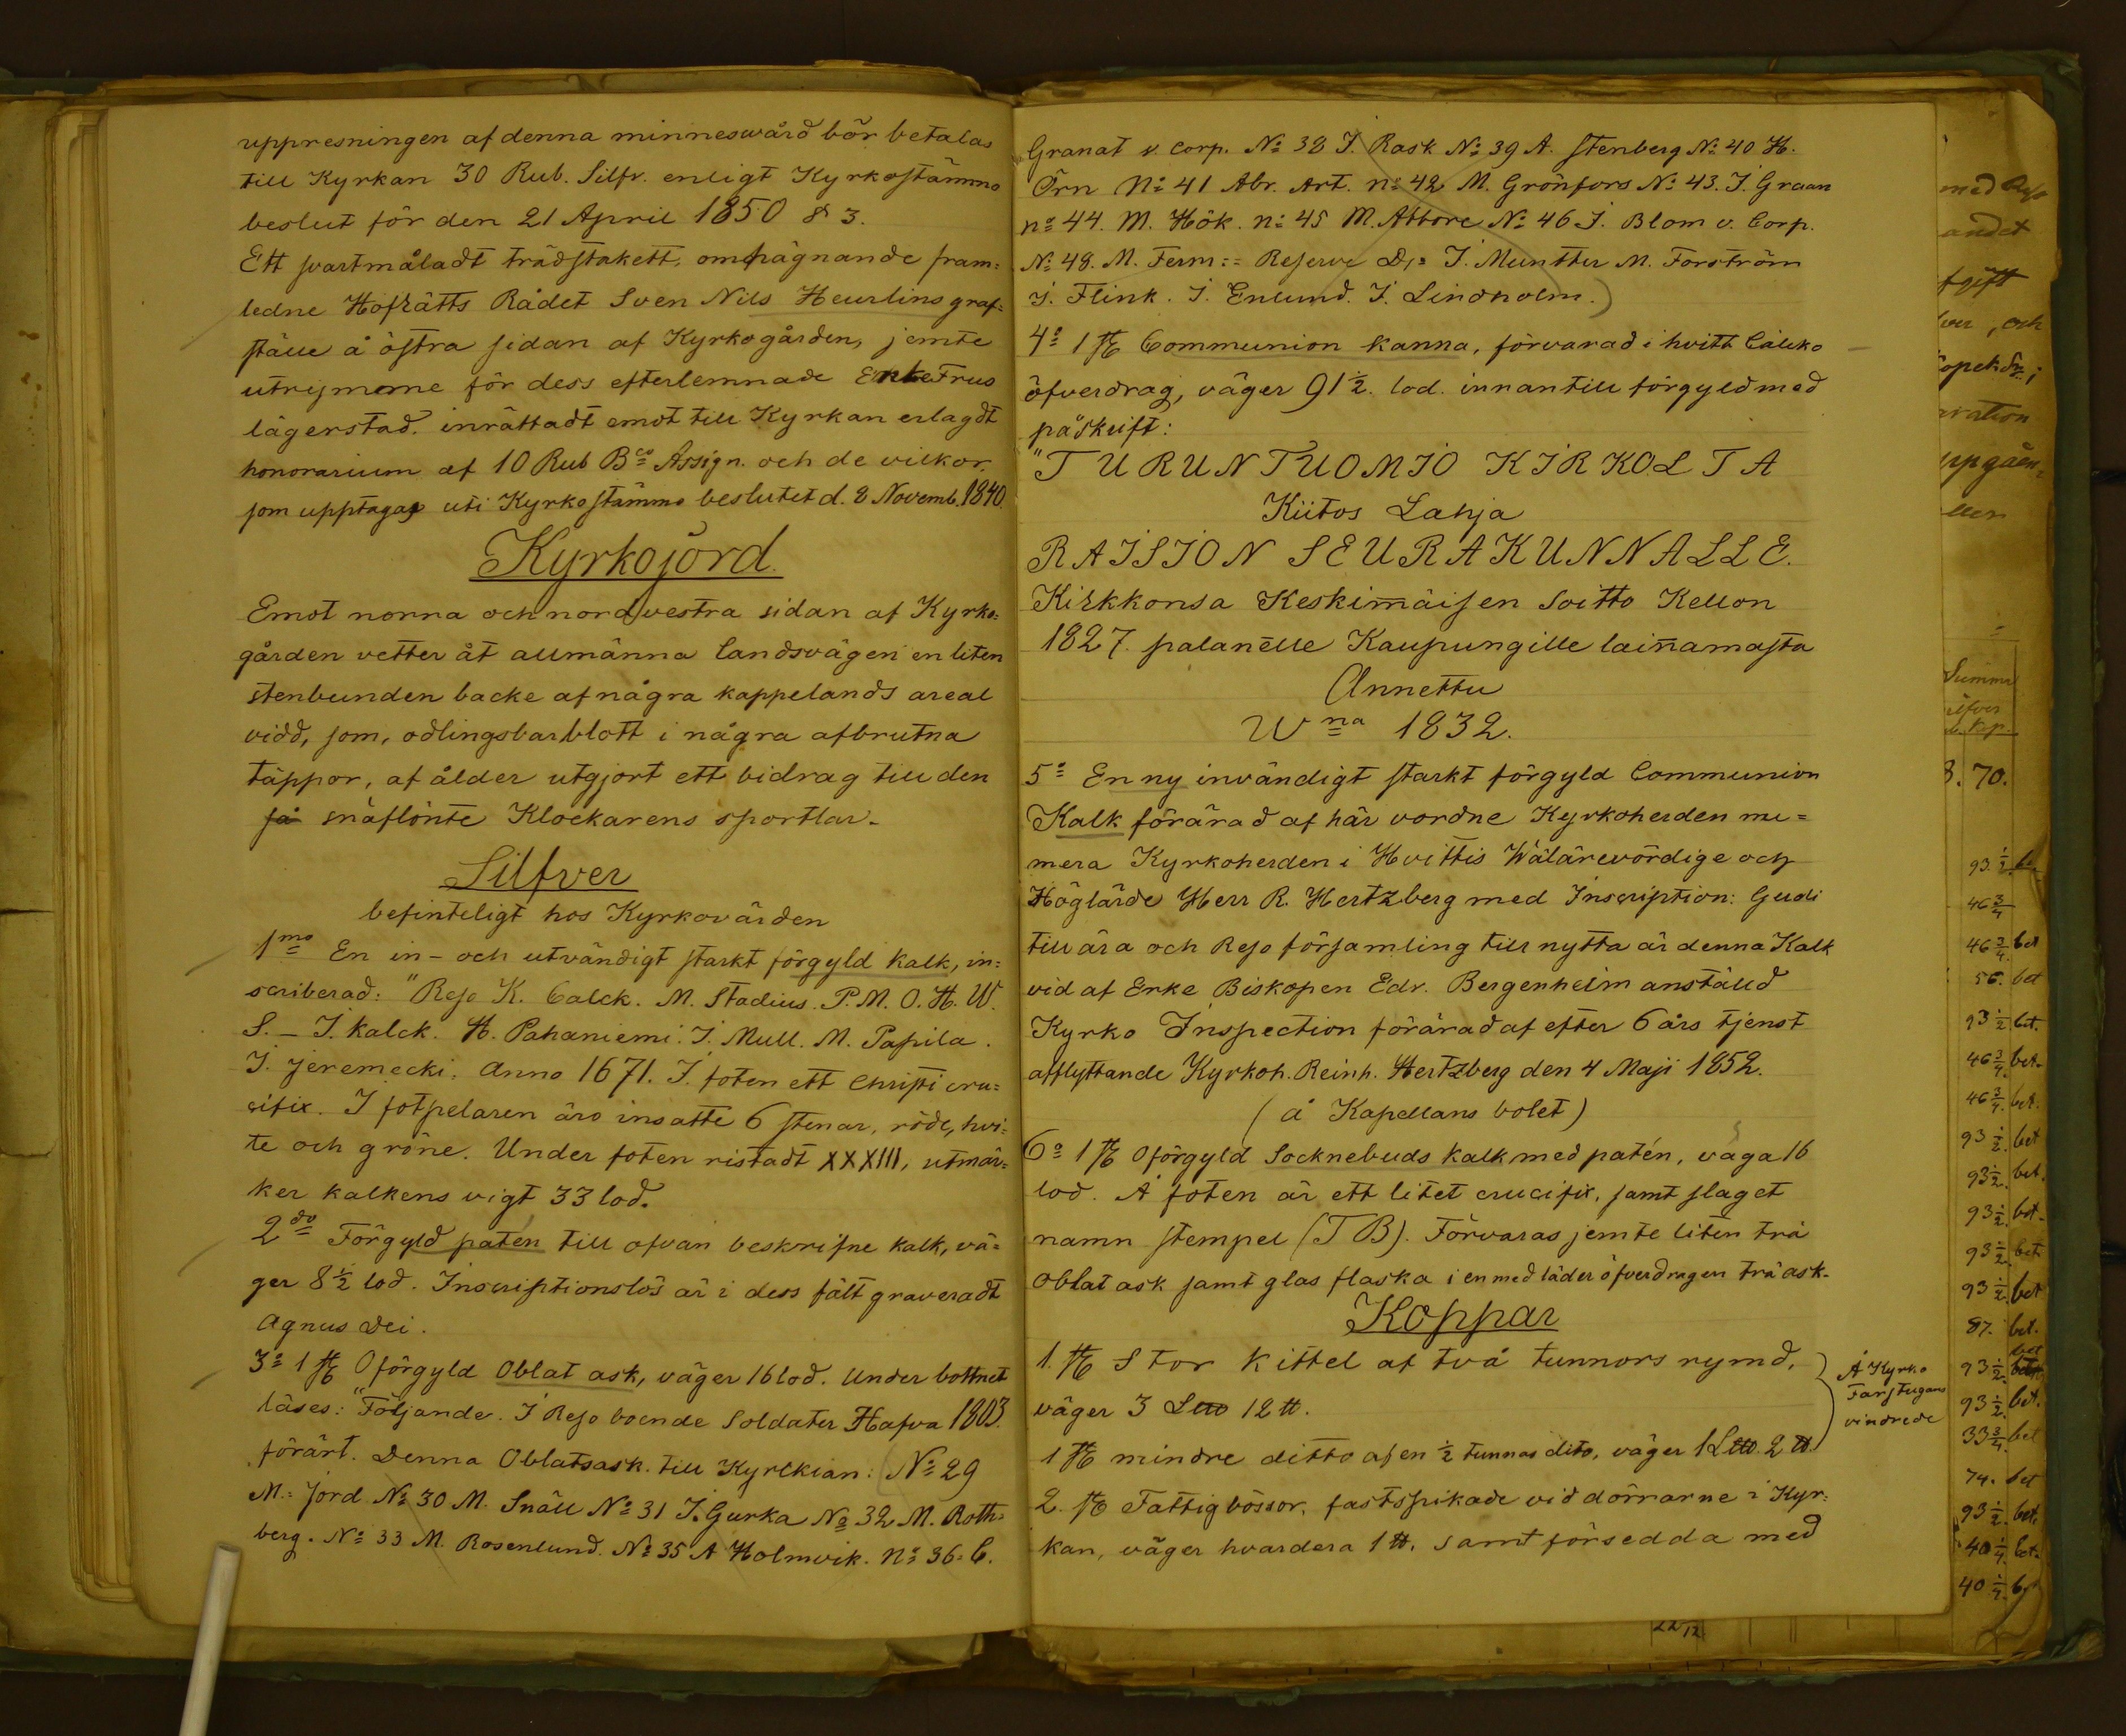 uppresningen af denna minneswård bör betalas
till Kyrkan 30 Rub. Silfr. enligt Kyrkostämmo
beslut för den 21 April 1850 § 3.
Ett svartmåladt trädstakett, omhägnande fram=
ledne Hofrätts Rådet Sven Nils Heurlins graf=
ställe å östra sidan af Kyrkogården, jemte
utrymme för dess efterlemnade EnkeFrus
lägerstad. inrättadt emot till Kyrkan erlagdt
honorarium af 10 Rub Bco Assign. och de vilkor.
som upptagas uti Kyrkostämmo beslutet d. 8 Novemb. 1840.
Kyrkojord.
Emot norra och nordvestra sidan af Kyrko=
gården vetter åt allmänna landsvägen en liten
stenbunden backe af några kappelands areal
vidd, som, odlingsbar blott i några afbrutna
täppor, af ålder utgjort ett bidrag till den
så snäflönte Klockarens sportlar.
Silfver
befinteligt hos Kyrkovärden
1mo En in- och utvändigt starkt förgyld kalk, in=
scriberad: "Reso K. Calck. M. Stadius. P. M. O. H. W.
S. - J. kalck. H. Pahaniemi. J. Mull. M. Papila.
J. Jeremecki. Anno 1671. I foten ett Christi cru=
cifix. I fotpelaren äro insatte 6 stenar, röde, hvi=
te och gröne. Under foten ristadt XXXIII, utmär=
ker kalkens vigt 33 lod.
2do Förgyld patén till ofvan beskrifne kalk, vä=
ger 8 1/2 lod. Inscriptionslös är i dess fält graveradt
Agnus Dei.
3o 1 st Oförgyld Oblat ask, väger 16 lod. Under bottnet
läses: "Följande. I Reso boende Soldater Hafva 1803.
förärt. Denna Oblatsask. till Kyrckian: (No 29
M. Jord No 30 M. Snäll No 31 J. Gurka No 32 M. Roth=
berg. No 33 M. Rosenlund. No 35 A Holmvik. No 36. C.
Granat v. Corp. No 38 J. Rask No 39 A. Stenberg No 40 H.
Örn No 41 Abr. Art. no 42 M. Grönfors No 43. J. Graan
no 44. M. Hök. no 45 M. Abbore No 46 J. Blom v. Corp.
No 48. M. Ferm: = Reserve D:o J. Muntter M. Forström
J. Flink. J. Enlund. J. Lindholm.)
4o 1 st Communion kanna, förvarad i hvitt Calcko
öfverdrag, väger 91 1/2. lod. innantill förgyld med
påskrift:
"TURUN TUOMIO KIRKOLTA
Kiitos Lahja
RAISION SEURAKUNNALLE.
Kirkkonsa Keskimäisen Soitto Kellon
1827. palanelle Kaupungille lainamasta
Annettu
Wna 1832.
5o En ny invändigt starkt förgyld Communion
Kalk förärad af här vordne Kyrkoherden nu=
mera Kyrkoherden i Hvittis Wälärevördige och
Höglärde Herr R. Hertzberg med Inscription: Gudi
till ära och Reso församling till nytta är denna Kalk
vid af Erke Biskopen Edv. Bergenheim anstäld
Kyrko Inspection förärad af efter 6 års tjenst
afflyttande Kyrkoh. Reinh. Hertzberg den 4 Maji 1852.
(å Kapellans bolet)
6o 1 st Oförgyld Socknebuds kalk med patén, väga 16
lod. Å foten är ett litet crucifix, samt slaget
namn stempel (TB). Förvaras jemte liten trä
Oblat ask samt glas flaska i en med läder öfverdragen trä ask.
Koppar
1. st Stor kittel af två tunnors rymd,
väger 3 L℔ 12 ℔.
1 st mindre ditto af en 1/2 tunnas dito, väger 1 L℔. 2 ℔.
Å Kyrko
Farstugans
vindrede
2. st Fattigbössor, fastspikade vid dörrarne i Kyr=
kan, väger hvardera 1 ℔, samt försedda med
andet
ver, och
Summa
Kop.
3. 70.
93 1/2
46 3/4
46 3/4 bet
56. bet
93 1/2 bet.
46 3/4. bet.
46 3/4. bet.
93 1/2. bet
93 1/2. bet.
93 1/2. bet.
93 1/2. bet
93 1/2. bet
87. bet.
93 1/2. bet
93 1/2. bet.
33 3/4. bet
74. bet
93 1/2. bet.
40 1/4. bet.
40 1/4.
22/12